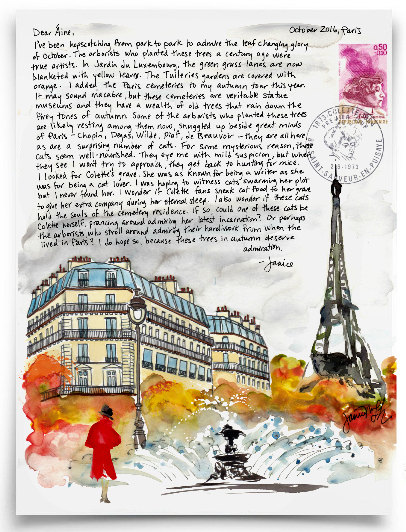 Dear Áine,
October 2016, Paris
I've been hopscotching from park to park to admire the leaf changing glory
of October. The arborists who planted these trees a century ago were
true artists. In Jardin du Luxembourg, the green grass lanes are now
blanketed with yellow leaves. The Tuileries gardens are covered with
orange. I added the Paris cemeteries to my autumn tour this year.
It may sound macabre, but these cemeteries are veritable statue
museums and they have a wealth of old trees that rain down the
firey tones of autumn. Some of the arborists who planted these trees
are likely resting among them now, snuggled up beside great minds
of Paris - Chopin, Degas, Wilde, Piaf, de Beauvoir - they are all here,
as are a surprising number of cats. For some mysterious reason, these
cats seem well-nourished. They eye me with mild suspicion, but when
they see I won't try to approach, they get back to hunting for mice.
I looked for Colette's grave. She was as known for being a writer as she
was for being a cat lover. I was hoping to witness cats swarming her plot
but I never found her. I wonder if Colette fans sneak cat food to her grave
to give her extra company during her eternal sleep. I also wonder if these cats
hold the souls of the cemetery residence. If so could one of these cats be
Colette herself, prancing around admiring her latest incarnation? Or perhaps
the arborists who stroll around admiring their hard work from when the
lived in Paris? I do hope so, because these trees in autumn deserve
admiration.
- Janice
0,50